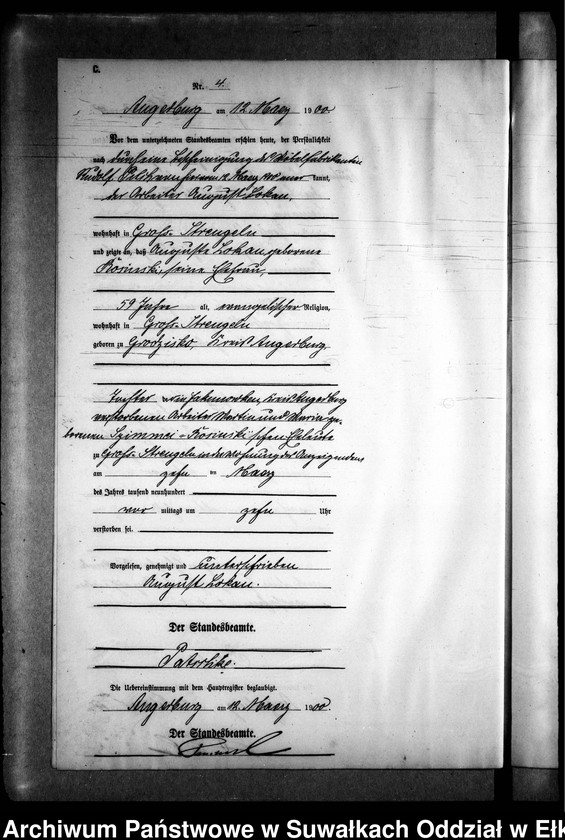 C.
Nr. 4.
Angerburg am 12. Maerz 1900.
Vor dem unterzeichneten Standesbeamten erschien heute, der Persönlichkeit
nach durch eine Bescheinigung des
Rudolf vom 12. Maerz kannt,
der Arbeiter August Lokau,
wohnhaft in Groß-Strengeln
und zeigte an, daß Auguste Lokau geborene
Kosinski, seine Ehefrau,
59 Jahre alt, evangelischer Religion,
wohnhaft in Groß-Strengeln
geboren zu Grodzisko, Kreis Angerburg
Tochter der in Kreis Angerburg
verstorbenen Arbeiter Martin und Maria ge-
borenen Kosinski'schen Eheleute
zu Groß-Strengeln in der Wohnung des Anzeigenden
am zehn ten Maerz
des Jahres tausend neunhundert
vor mittags um zehn Uhr
verstorben sei.
Vorgelesen, genehmigt und unterschrieben
August Lokau.
Der Standesbeamte.
Die Uebereinstimmung mit dem Hauptregister beglaubigt.
Angerburg am 12. Maerz 1900.
Der Standesbeamte.
Archiwum Państwowe w Suwałkach Oddział w Ełk